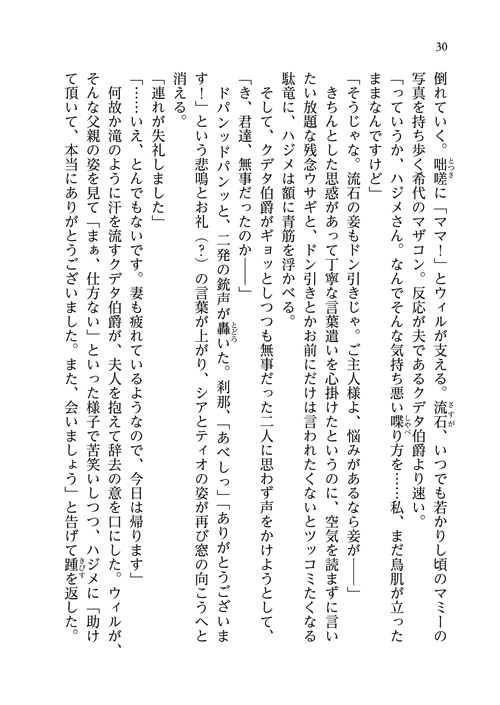 30
倒れていく。咄嗟に「ママー！」とウィルが支える。流石、いつでも若かりし頃のマミーの
写真を持ち歩く希代のマザコン。反応が夫であるクデタ伯爵より速い。
「っていうか、ハジメさん。なんでそんな気持ち悪い喋り方を……私、まだ鳥肌が立った
ままなんですけど」
「そうじゃな。流石の妾もドン引きじゃ。ご主人様よ、悩みがあるなら妾が――」
きちんとした思惑があって丁寧な言葉遣いを心掛けたというのに、空気を読まずに言い
たい放題な残念ウサギと、ドン引きとかお前にだけは言われたくないとツッコミたくなる
駄竜に、ハジメは額に青筋を浮かべる。
そして、クデタ伯爵がギョッとしつつも無事だった二人に思わず声をかけようとして、
「き、君達、無事だったのか――」
ドパンッドパンッと、二発の銃声が轟いた。刹那、「あべしっ」「ありがとうございま
す！」という悲鳴とお礼（？）の言葉が上がり、シアとティオの姿が再び窓の向こうへと
消える。
「連れが失礼しました」
「……いえ、とんでもないです。妻も疲れているようなので、今日は帰ります」
何故か滝のように汗を流すクデタ伯爵が、夫人を抱えて辞去の意を口にした。ウィルが、
そんな父親の姿を見て「まぁ、仕方ない」といった様子で苦笑いしつつ、ハジメに「助け
て頂いて、本当にありがとうございました。また、会いましょう」と告げて踵を返した。